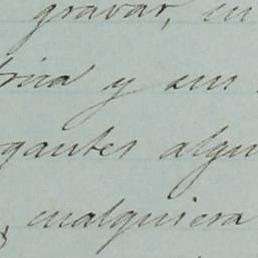 gravar, in
trina y sus
gantes algu
cualquiera